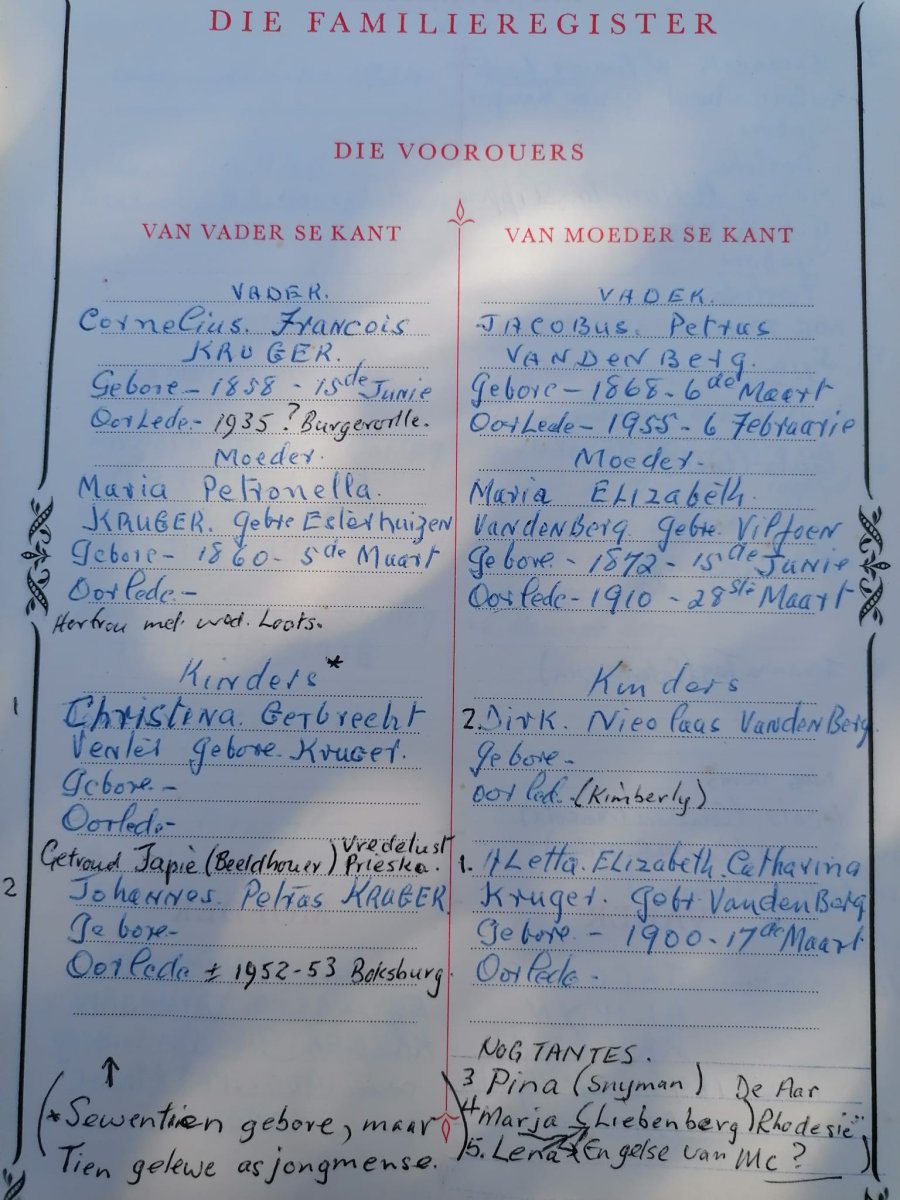 DIE FAMILIEREGISTER
DIE VOOROUERS
VAN VADER SE KANT
VADER.
Cornelius. Francois
KRUGER.
Gebore - 1858 - 15de Junie
Oorlede - 1935 ? Burgerville.
Moeder.
Maria Petronella.
KRUGER. gebre Esterhuizen
Gebore - 1860 - 5de Maart
Oorlede -
Hertrou met wed. Loots.
Kinders *
1 Christina. Gerbrecht
Venter gebore. Kruger.
Gebore. -
Oorlede -
Getroud Japie (Beeldhouer) Vredelust Prieska.
2 Johannes. Petras KRUGER.
Gebore -
Oorlede ± 1952-53 Boksburg.
↑
(* Sewentien gebore, maar
Tien gelewe as jongmense.
VAN MOEDER SE KANT
VADER.
JACOBUS. Petrus
VANDENBerg.
Gebore - 1868 - 6de Maart
Oorlede - 1955 - 6 Februarie
Moeder -
Maria ELIZabeth.
VandenBerg gebre. Viljoen
Gebore. - 1872 - 15de Junie
Oorlede - 1910 - 28ste Maart
Kinders
2. Dirk. Nicolaas VandenBerg
gebore -
oorled. (Kimberly)
1. ALetta. ELIZabeth. Catharina
Kruger. Gebr VandenBerg
Gebore. - 1900 - 17de Maart
Oorlede -
NOG TANTES.
3 Pina (Snyman) De Aar
4 Marja (Liebenberg) Rhodesië
5. Lena (Engelse van Mc ?)